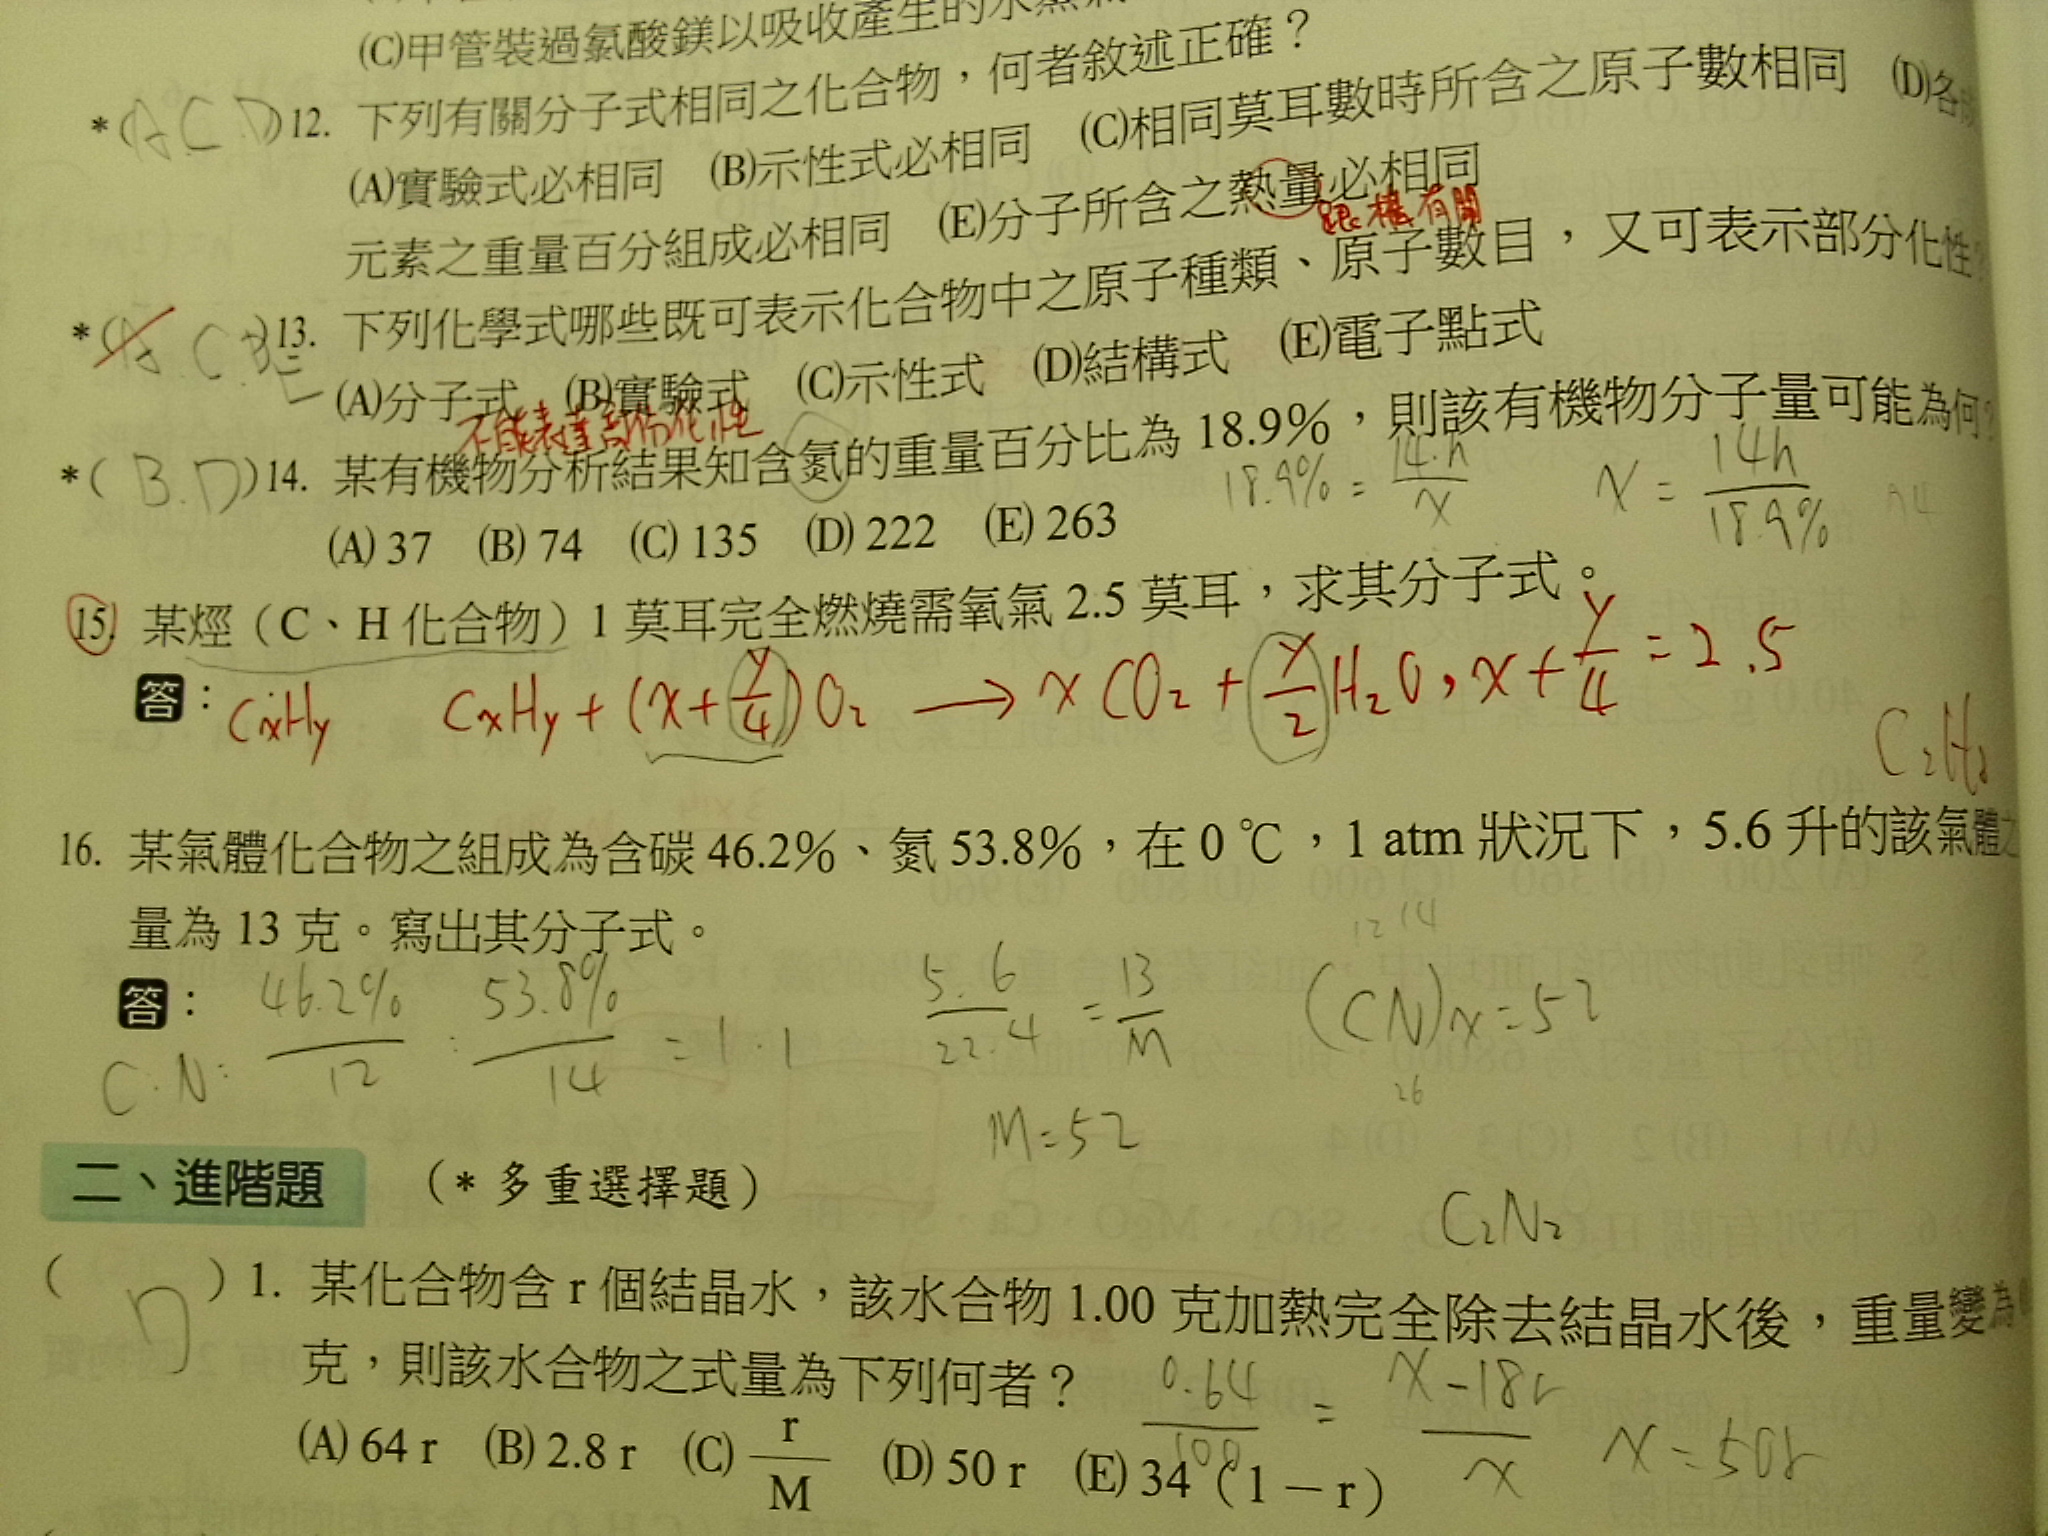 (C)甲管裝過氯酸鎂以吸收產生的水蒸氣
*(A.C.D)12. 下列有關分子式相同之化合物，何者敘述正確？
(A)實驗式必相同 (B)示性式必相同 (C)相同莫耳數時所含之原子數相同 (D)各
元素之重量百分組成必相同 (E)分子所含之熱量必相同
跟c構有關
*(A.C.D E)13. 下列化學式哪些既可表示化合物中之原子種類、原子數目，又可表示部分化性？
(A)分子式 (B)實驗式 (C)示性式 (D)結構式 (E)電子點式
不能表達部份化性
*(B.D)14. 某有機物分析結果知含氮的重量百分比為 18.9%，則該有機物分子量可能為何？
18.9% = 14.n/x x = 14n/18.9%
(A) 37 (B) 74 (C) 135 (D) 222 (E) 263
15. 某烴（C、H 化合物）1 莫耳完全燃燒需氧氣 2.5 莫耳，求其分子式。
答：CxHy CxHy + (x+y/4)O₂ → xCO₂ + y/2 H₂O, x+y/4 = 2.5
C₂H₂
16. 某氣體化合物之組成為含碳 46.2%、氮 53.8%，在 0 ℃，1 atm 狀況下，5.6 升的該氣體之
量為 13 克。寫出其分子式。
答：
C:N: 46.2%/12 : 53.8%/14 = 1:1 5.6/22.4 = 13/M (CN)x=52
12 14
26
M=52
C₂N₂
二、進階題 （* 多重選擇題）
( D ) 1. 某化合物含 r 個結晶水，該水合物 1.00 克加熱完全除去結晶水後，重量變為
克，則該水合物之式量為下列何者？
0.64/100 = x-18r/x x=50r
(A) 64 r (B) 2.8 r (C) r/M (D) 50 r (E) 34（1－r）